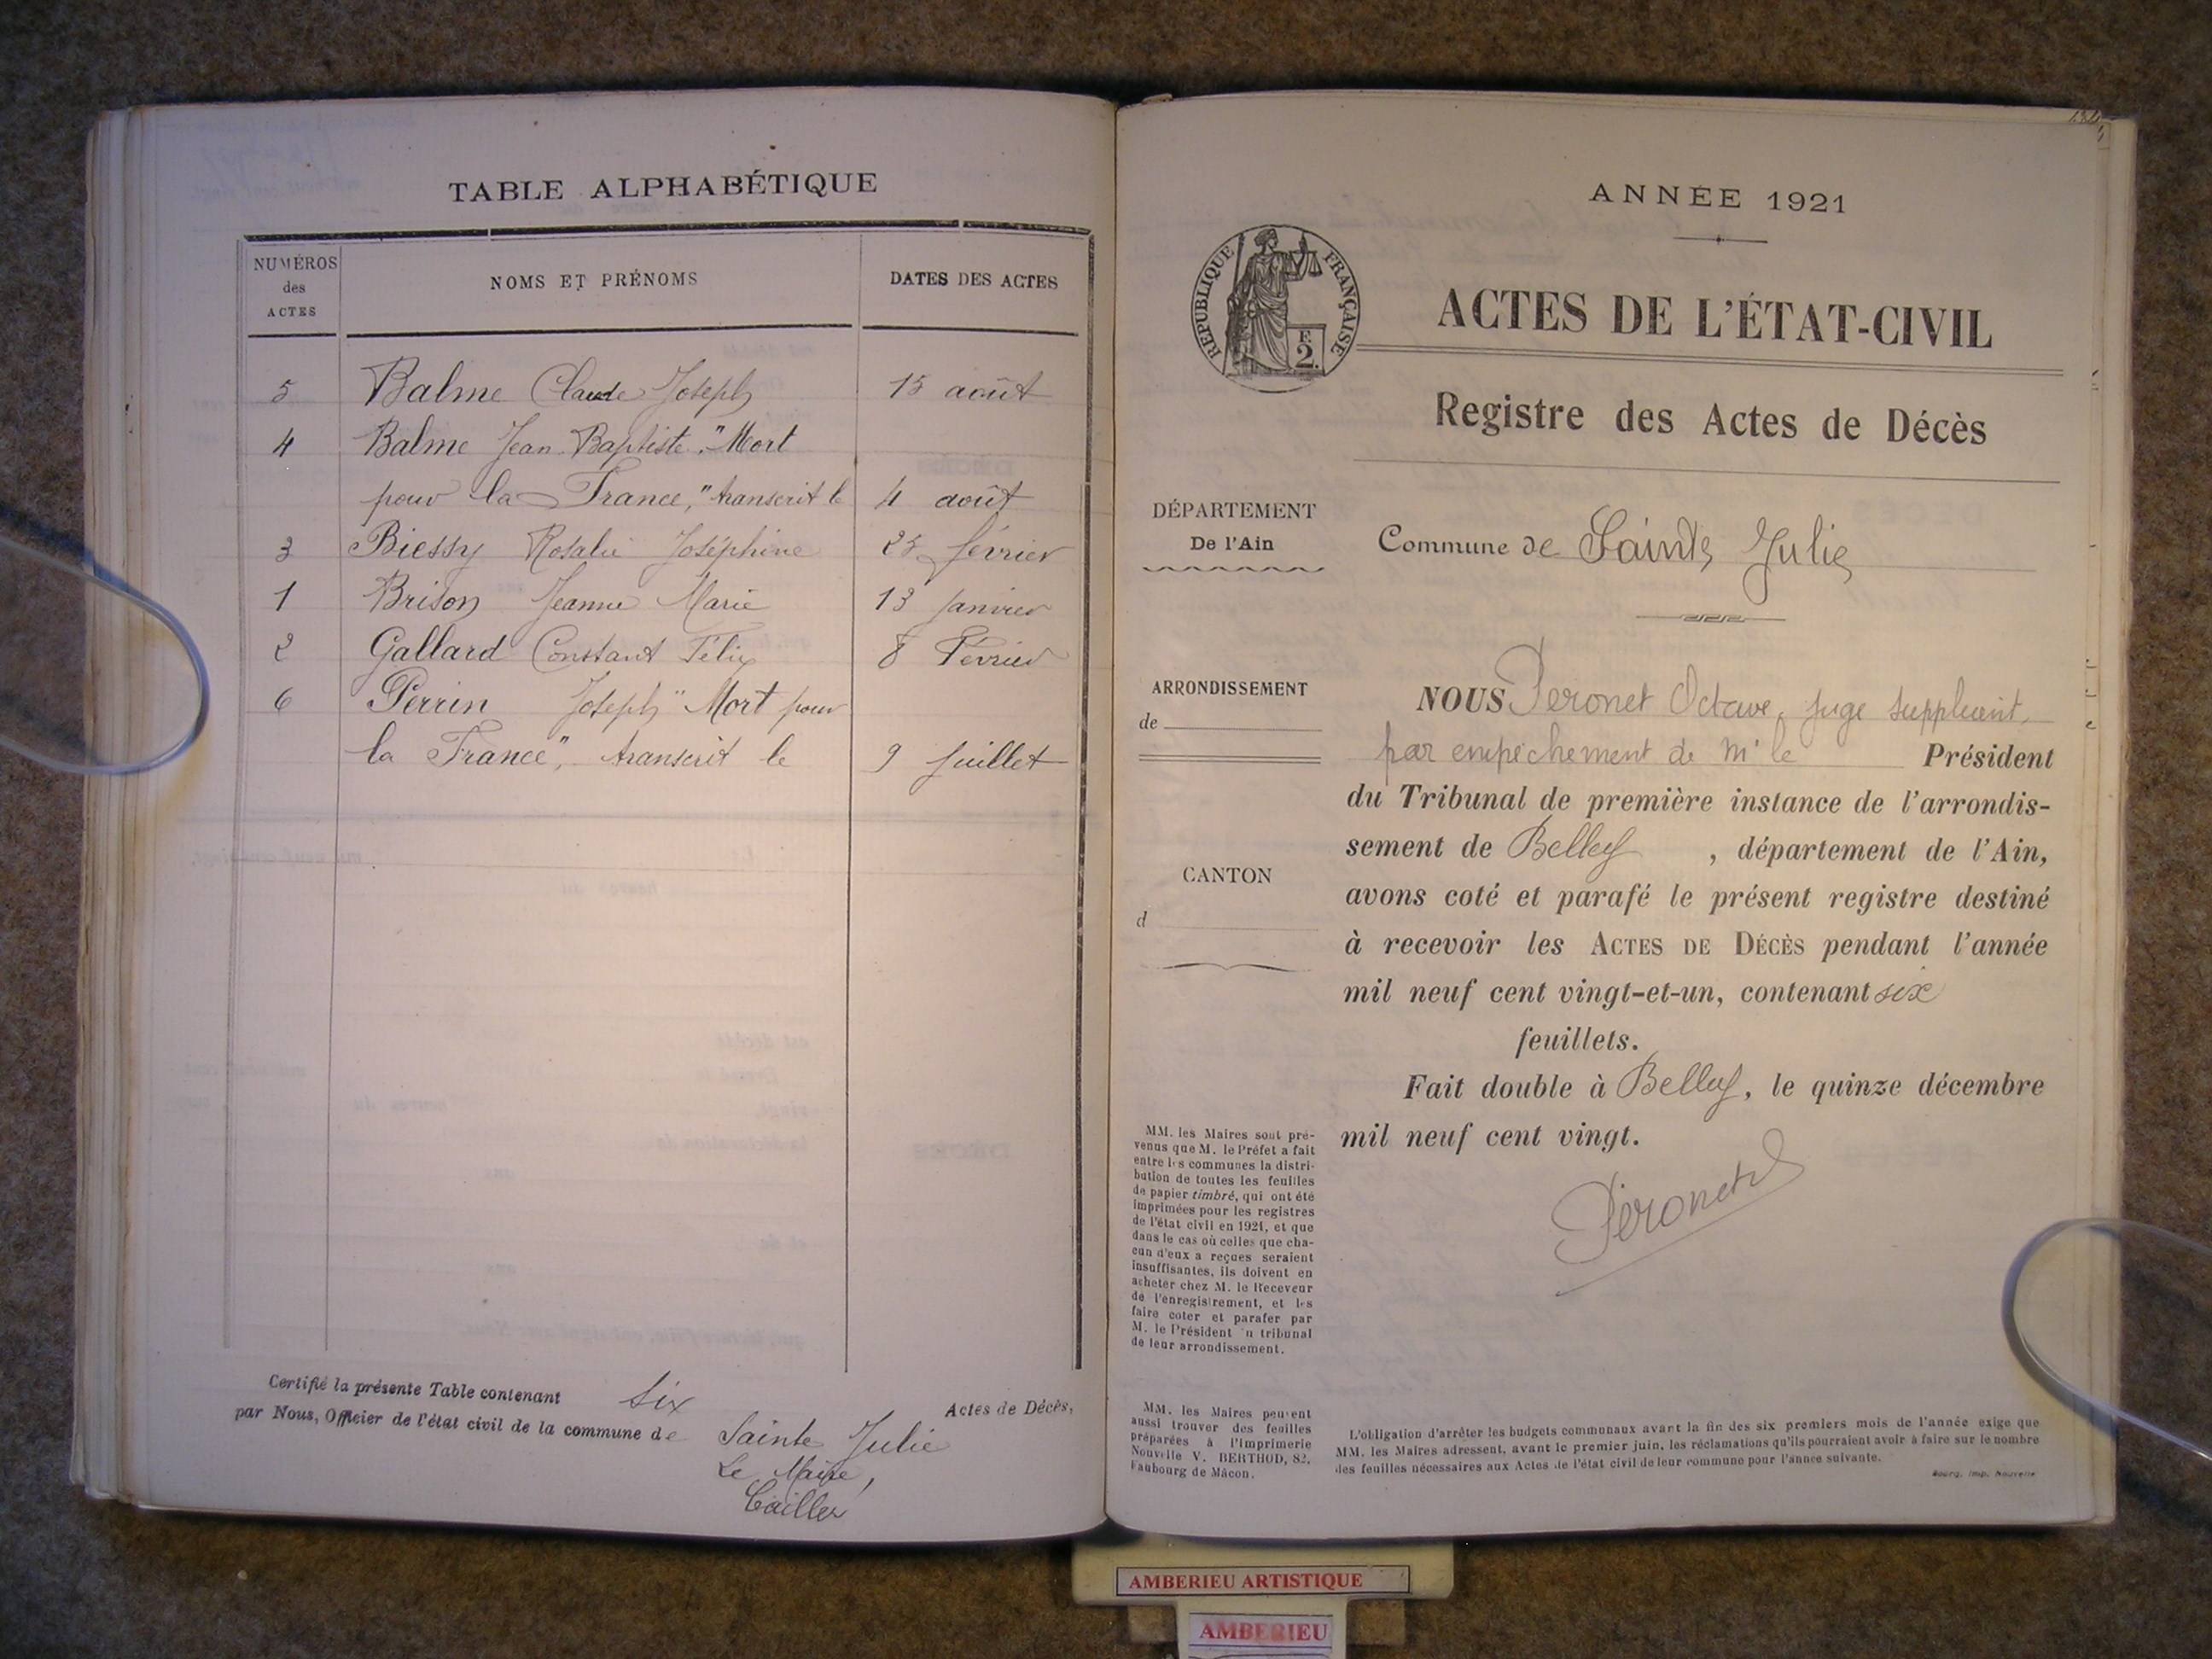 TABLE ALPHABÉTIQUE
NUMÉROS
des
ACTES
NOMS ET PRÉNOMS
DATES DES ACTES
5 Balme Claude Joseph 15 août
4 Balme Jean Baptiste "Mort
pour la France," transcrit le 4 août
3 Biessy Rosalie Joséphine 25 février
1 Brison Jeanne Marie 13 janvier
2 Gallard Constant Félix 8 Février
6 Perrin Joseph "Mort pour
la France", transcrit le 9 juillet
Certifié la présente Table contenant six Actes de Décès,
par Nous, Officier de l'état civil de la commune de Sainte Julie
Le Maire,
ANNÉE 1921
RÉPUBLIQUE FRANÇAISE
F.
2.
ACTES DE L'ÉTAT-CIVIL
Registre des Actes de Décès
DÉPARTEMENT
De l'Ain
Commune de Sainte Julie
ARRONDISSEMENT
de
CANTON
d
NOUS Peronet Octave, juge suppléant,
par empêchement de Mr le Président
du Tribunal de première instance de l'arrondis-
sement de Belley, département de l'Ain,
avons coté et parafé le présent registre destiné
à recevoir les ACTES DE DÉCÈS pendant l'année
mil neuf cent vingt-et-un, contenant six
feuillets.
Fait double à Belley, le quinze décembre
mil neuf cent vingt.
Peronet
MM. les Maires sont pré-
venus que M. le Préfet a fait
entre les communes la distri-
bution de toutes les feuilles
de papier timbré, qui ont été
imprimées pour les registres
de l'état civil en 1921, et que
dans le cas où celles que cha-
cun d'eux a reçues seraient
insuffisantes, ils doivent en
acheter chez M. le Receveur
de l'enregistrement, et les
faire coter et parafer par
M. le Président du tribunal
de leur arrondissement.
MM. les Maires peuvent
aussi trouver des feuilles
préparées à l'Imprimerie
Nouvelle V. BERTHOD, 82,
Faubourg de Mâcon.
L'obligation d'arrêter les budgets communaux avant la fin des six premiers mois de l'année exige que
MM. les Maires adressent, avant le premier juin, les réclamations qu'ils pourraient avoir à faire sur le nombre
des feuilles nécessaires aux Actes de l'état civil de leur commune pour l'année suivante.
Bourg, Imp. Nouvelle
AMBERIEU ARTISTIQUE
AMBERIEU